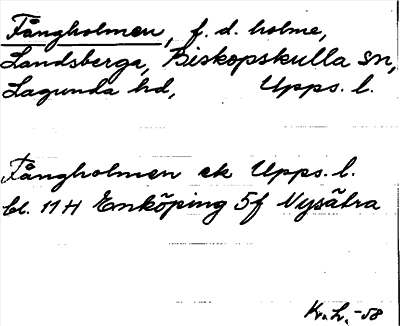 Fångholmen, f. d. holme,
Landsberga, Biskopskulla sn,
Lagunda hd, Upps. l.
Fångholmen ek Upps. l.
bl. 11 H Enköping 5f Nysätra
Kr. L. -58